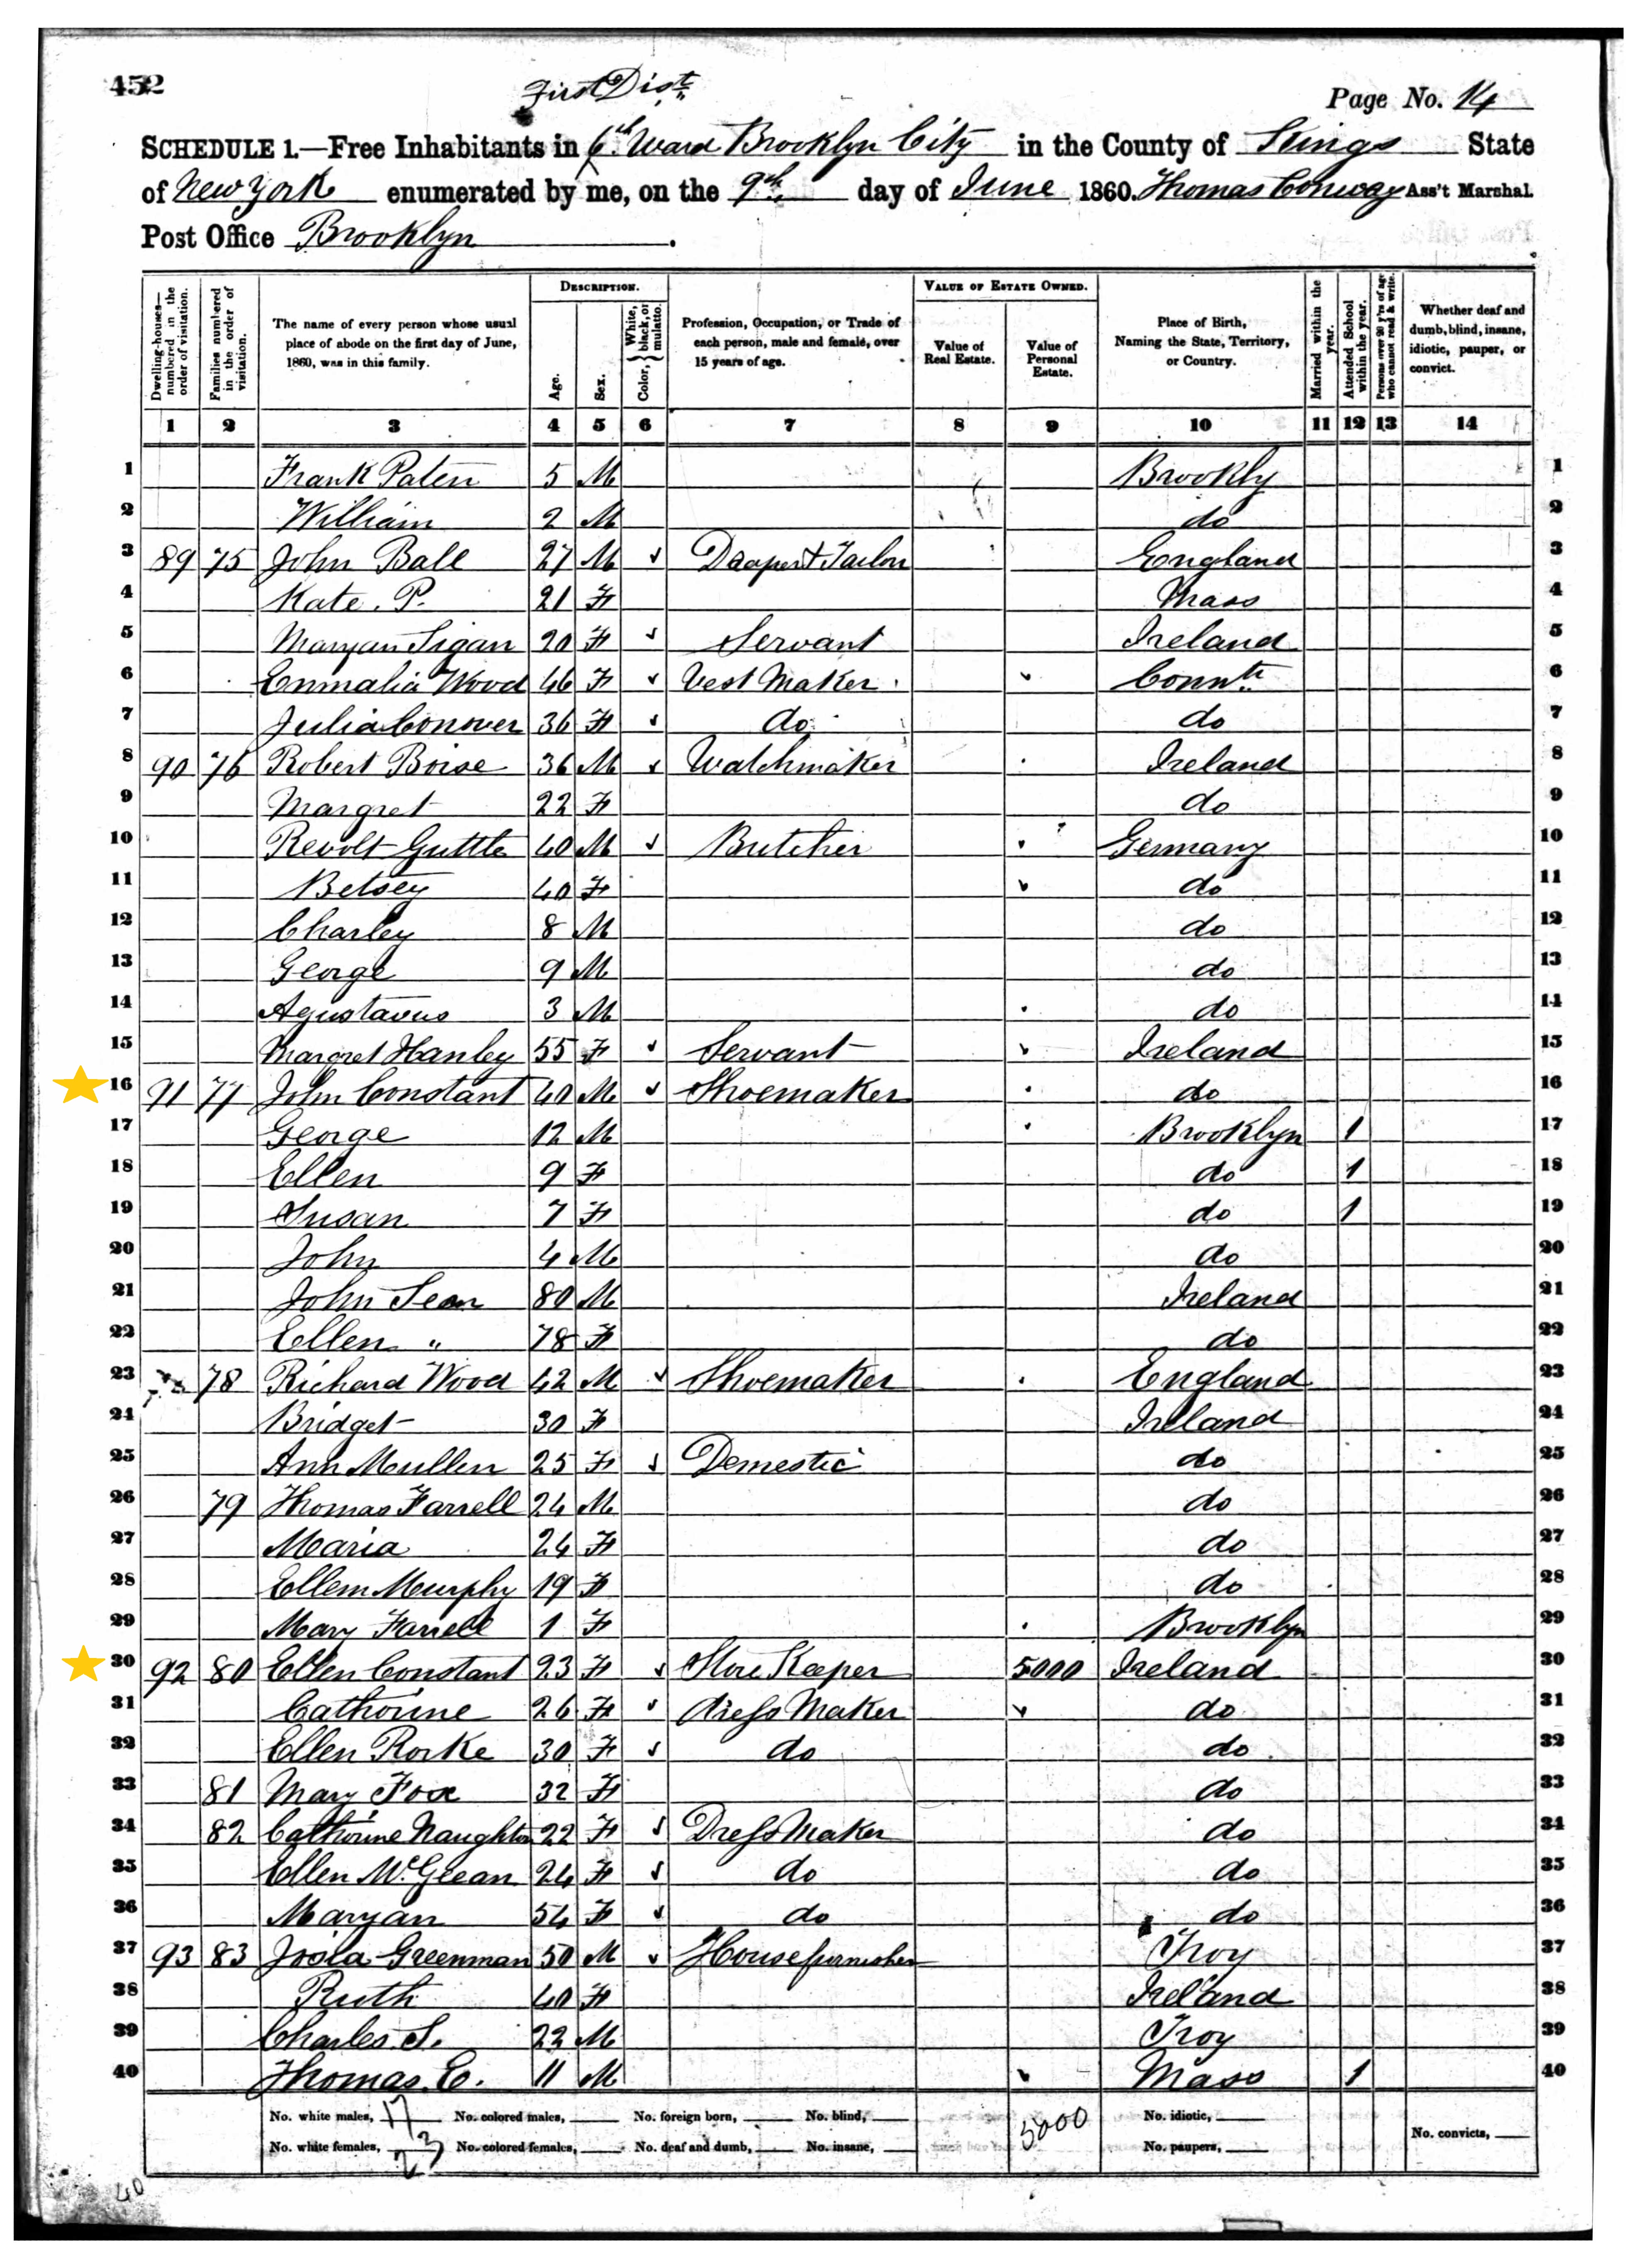 452
First Dist
Page No. 14
SCHEDULE 1.—Free Inhabitants in 6th Ward Brooklyn City in the County of Kings State
of New York enumerated by me, on the 9th day of June 1860. Thomas Conway Ass't Marshal.
Post Office Brooklyn.
Dwelling-houses—numbered in the order of visitation.
Families numbered in the order of visitation.
The name of every person whose usual place of abode on the first day of June, 1860, was in this family.
DESCRIPTION.
Age.
Sex.
Color, White, black, or mulatto.
Profession, Occupation, or Trade of each person, male and female, over 15 years of age.
VALUE OF ESTATE OWNED.
Value of Real Estate.
Value of Personal Estate.
Place of Birth, Naming the State, Territory, or Country.
Married within the year.
Attended School within the year.
Persons over 20 y'rs of age who cannot read & write.
Whether deaf and dumb, blind, insane, idiotic, pauper, or convict.
1 2 3 4 5 6 7 8 9 10 11 12 13 14
1 Frank Paten 5 M Brookly 1
2 William 2 M do 2
3 89 75 John Ball 27 M Draper & Tailor England 3
4 Kate. P. 21 F Mass 4
5 Maryan 20 F Servant Ireland 5
6 Emmalia Wood 46 F Vest Maker Connt 6
7 Julia Conover 36 F do do 7
8 90 76 Robert Boise 36 M Watchmaker Ireland 8
9 Margret 22 F do 9
10 Revolt Guttle 40 M Butcher Germany 10
11 Betsey 40 F do 11
12 Charley 8 M do 12
13 George 9 M do 13
14 Agustavus 3 M do 14
15 Margret Hanley 55 F Servant Ireland 15
16 91 77 John Constant 40 M Shoemaker do 16
17 George 12 M Brooklyn 1 17
18 Ellen 9 F do 1 18
19 Susan 7 F do 1 19
20 John 4 M do 20
21 John 80 M Ireland 21
22 Ellen " 78 F do 22
23 78 Richard Wood 42 M Shoemaker England 23
24 Bridget 30 F Ireland 24
25 Ann Mullen 25 F Domestic do 25
26 79 Thomas Farrell 24 M do 26
27 Maria 24 F do 27
28 Ellem Murphy 19 F do 28
29 Mary Farrell 1 F Brooklyn 29
30 92 80 Ellen Constant 23 F Store Keeper 5000 Ireland 30
31 Cathorine 26 F dress Maker do 31
32 Ellen Rorke 30 F do do 32
33 81 Mary Fox 32 F do 33
34 82 Cathorine Naughton 22 F Dress Maker do 34
35 Ellen McGeean 24 F do do 35
36 Maryan 54 F do do 36
37 93 83 Greenman 50 M Housefurnisher Troy 37
38 Ruth 40 F Ireland 38
39 Charles S. 22 M Troy 39
40 Thomas E. 11 M Mass 1 40
No. white males, 17 No. colored males, No. foreign born, No. blind, 5000 No. idiotic,
No. white females, 23 No. colored females, No. deaf and dumb, No. insane, No. paupers, No. convicts,
40